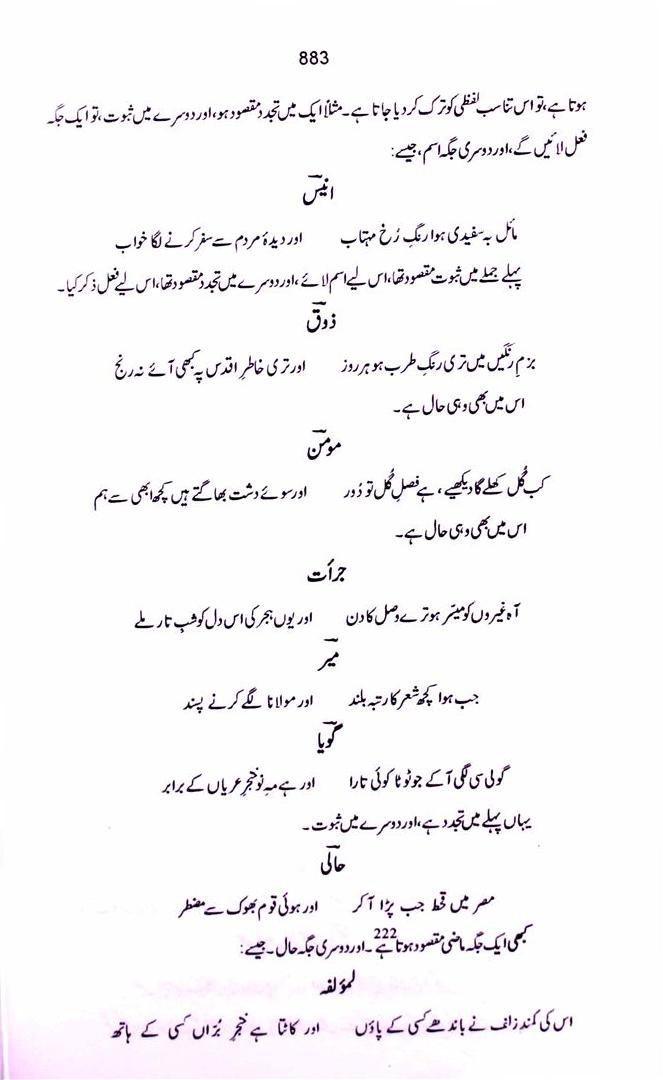 883
ہوتا ہے، تو اس تناسب لفظی کو ترک کر دیا جاتا ہے۔ مثلاً ایک میں تجدد مقصود ہو، اور دوسرے میں ثبوت، تو ایک جگہ
فعل لائیں گے، اور دوسری جگہ اسم، جیسے:
انیسؔ
مائل بہ سفیدی ہوا رنگِ رُخِ مہتاب اور دیدۂ مردم سے سفر کرنے لگا خواب
پہلے جملے میں ثبوت مقصود تھا، اس لیے اسم لائے، اور دوسرے میں تجدد مقصود تھا، اس لیے فعل ذکر کیا۔
ذوقؔ
بزمِ رنگیں میں تری رنگِ طرب ہو ہر روز اور تری خاطرِ اقدس پہ کبھی آئے نہ رنج
اس میں بھی وہی حال ہے۔
مومنؔ
کب گُل کھلے گا دیکھیے، ہے فصلِ گُل تو دُور اور سوئے دشت بھاگتے ہیں کچھ ابھی سے ہم
اس میں بھی وہی حال ہے۔
جرأت
آہ غیروں کو میسّر ہو ترے وصل کا دن اور یوں ہجر کی اس دل کو شبِ تار ملے
میرؔ
جب ہوا کچھ شعر کا رتبہ بلند اور مولانا لگے کرنے پسند
گویاؔ
گولی سی لگی آ کے جو ٹوٹا کوئی تارا اور ہے مہِ نو خنجرِ عریاں کے برابر
یہاں پہلے میں تجدد ہے، اور دوسرے میں ثبوت۔
حالیؔ
مصر میں قحط جب پڑا آ کر اور ہوئی قوم بھوک سے مضطر
کبھی ایک جگہ ماضی مقصود ہوتا ہے222۔ اور دوسری جگہ حال۔ جیسے:
لمؤلفہ
اس کی کمندِ زلف نے باندھے کسی کے پاؤں اور کاٹتا ہے خنجرِ بُرّاں کسی کے ہاتھ